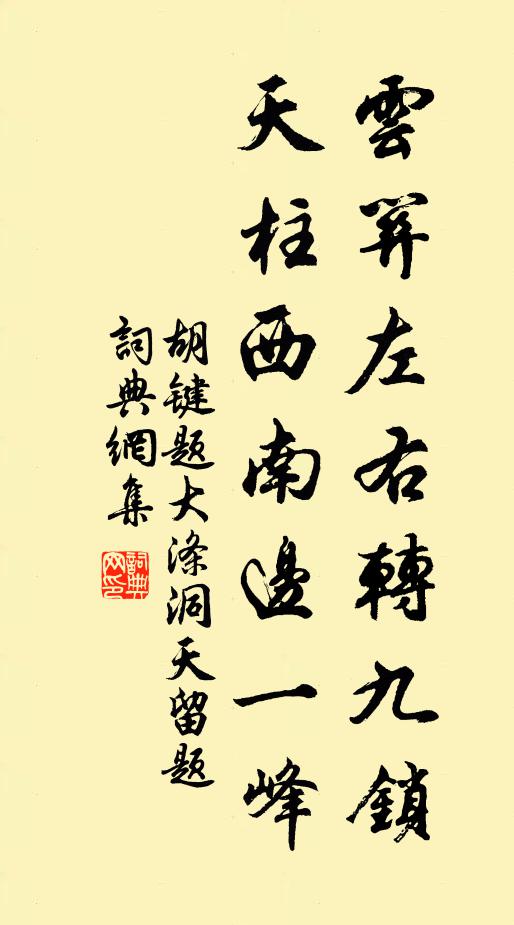 雲開左右轉九鎖
天柱西南邊一峰
胡鍵題大滌洞天留題
詞典網集
詞典网印